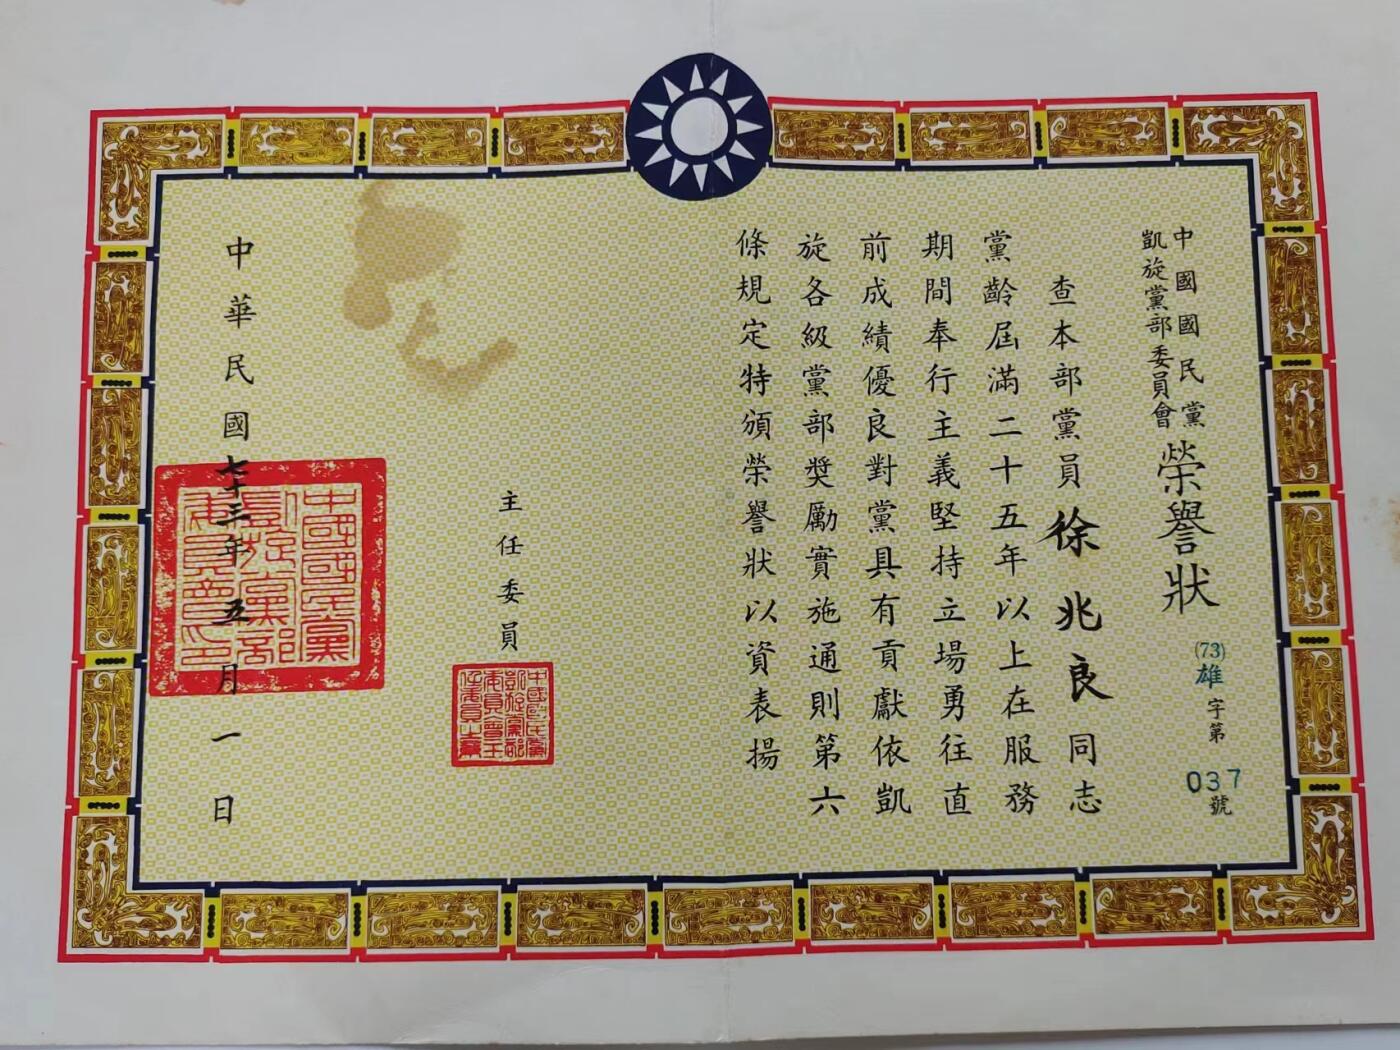 中國國民黨
凱旋黨部委員會
榮譽狀
(73)雄字第037號
查本部黨員徐兆良同志
黨齡屆滿二十五年以上在服務
期間奉行主義堅持立場勇往直
前成績優良對黨具有貢獻依凱
旋各級黨部獎勵實施通則第六
條規定特頒榮譽狀以資表揚
主任委員
中國國民黨
凱旋黨部
委員會主
任委員之章
中華民國七十三年五月一日
中國國民黨
凱旋黨部
委員會印